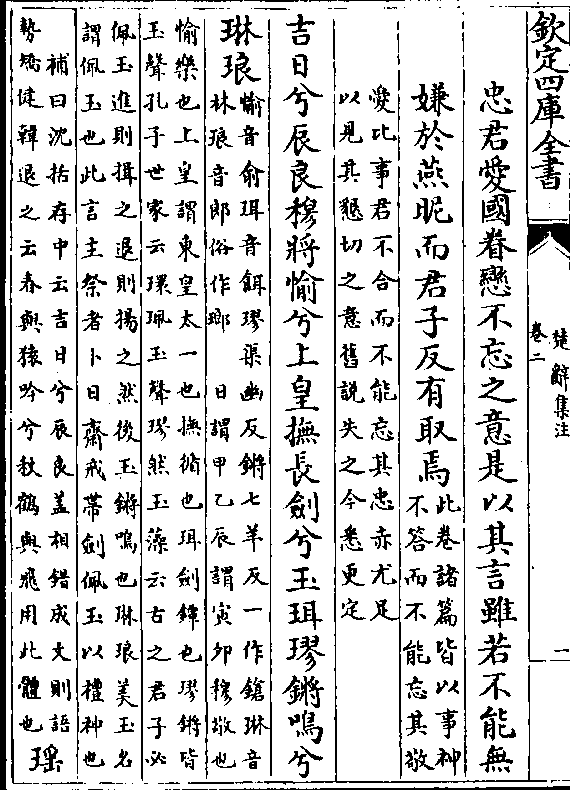 欽定四庫全書
楚辭集注
卷二
一
忠君愛國眷戀不忘之意是以其言雖若不能無
嫌於燕昵而君子反有取焉此卷諸篇皆以事神
不答而不能忘其敬
愛比事君不合而不能忘其忠亦尤足
以見其懇切之意舊說失之今悉更定
吉日兮辰良穆將愉兮上皇撫長劍兮玉珥璆鏘鳴兮
琳琅愉音俞珥音餌璆渠幽反鏘七羊反一作鎗琳音
林琅音郎俗作瑯 日謂甲乙辰謂寅卯穆敬也
愉樂也上皇謂東皇太一也撫循也珥劍鐔也璆鏘皆
玉聲孔子世家云環珮玉聲璆然玉藻云古之君子必
佩玉進則揖之退則揚之然後玉鏘鳴也琳琅美玉名
謂佩玉也此言主祭者卜日齋戒帶劍佩玉以禮神也
補曰沈括存中云吉日兮辰良盖相錯成文則語
勢矯健韓退之云春與猿吟兮秋鶴與飛用此體也
瑶